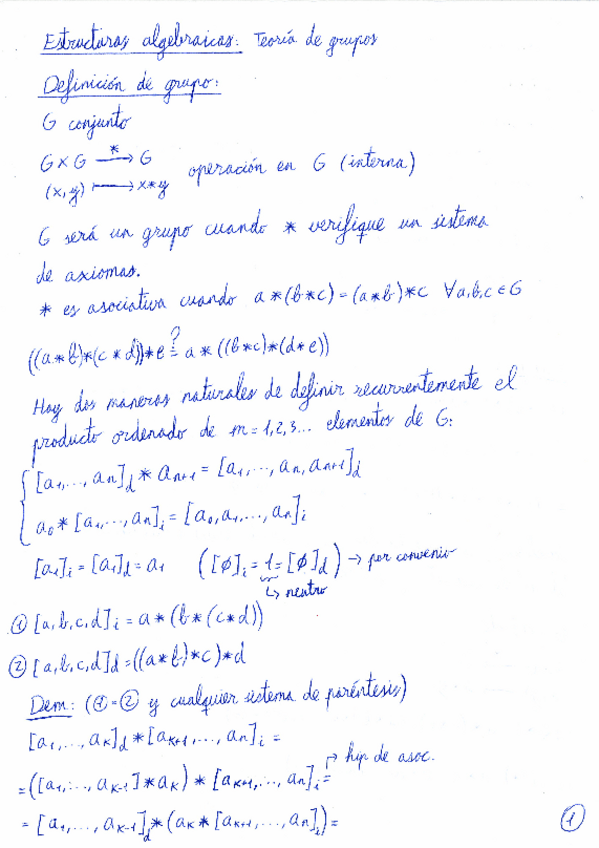 Estructuras algebraicas: Teoría de grupos
Definición de grupo:
G conjunto
G×G —*→ G
(x,y) ⟼ x*y operación en G (interna)
G será un grupo cuando * verifique un sistema
de axiomas.
* es asociativa cuando a*(b*c)=(a*b)*c ∀a,b,c∈G
((a*b)*(c*d))*e ≟ a*((b*c)*(d*e))
Hay dos maneras naturales de definir recurrentemente el
producto ordenado de m=1,2,3... elementos de G:
[a₁,...,aₙ]_d * aₙ₊₁ = [a₁,...,aₙ,aₙ₊₁]_d
a₀*[a₁,...,aₙ]_i = [a₀,a₁,...,aₙ]_i
[a₁]_i = [a₁]_d = a₁ ([∅]_i = 1 = [∅]_d) → por convenio
↳ neutro
① [a,b,c,d]_i = a*(b*(c*d))
② [a,b,c,d]_d = ((a*b)*c)*d
Dem: (①=② y cualquier sistema de paréntesis)
[a₁,...,a_K]_d * [a_K+1,...,aₙ]_i =
=([a₁,...,a_K-1]*a_K) * [a_K+1,...,aₙ]_i = → hip de asoc.
= [a₁,...,a_K-1]_d * (a_K * [a_K+1,...,aₙ]_i) =
①